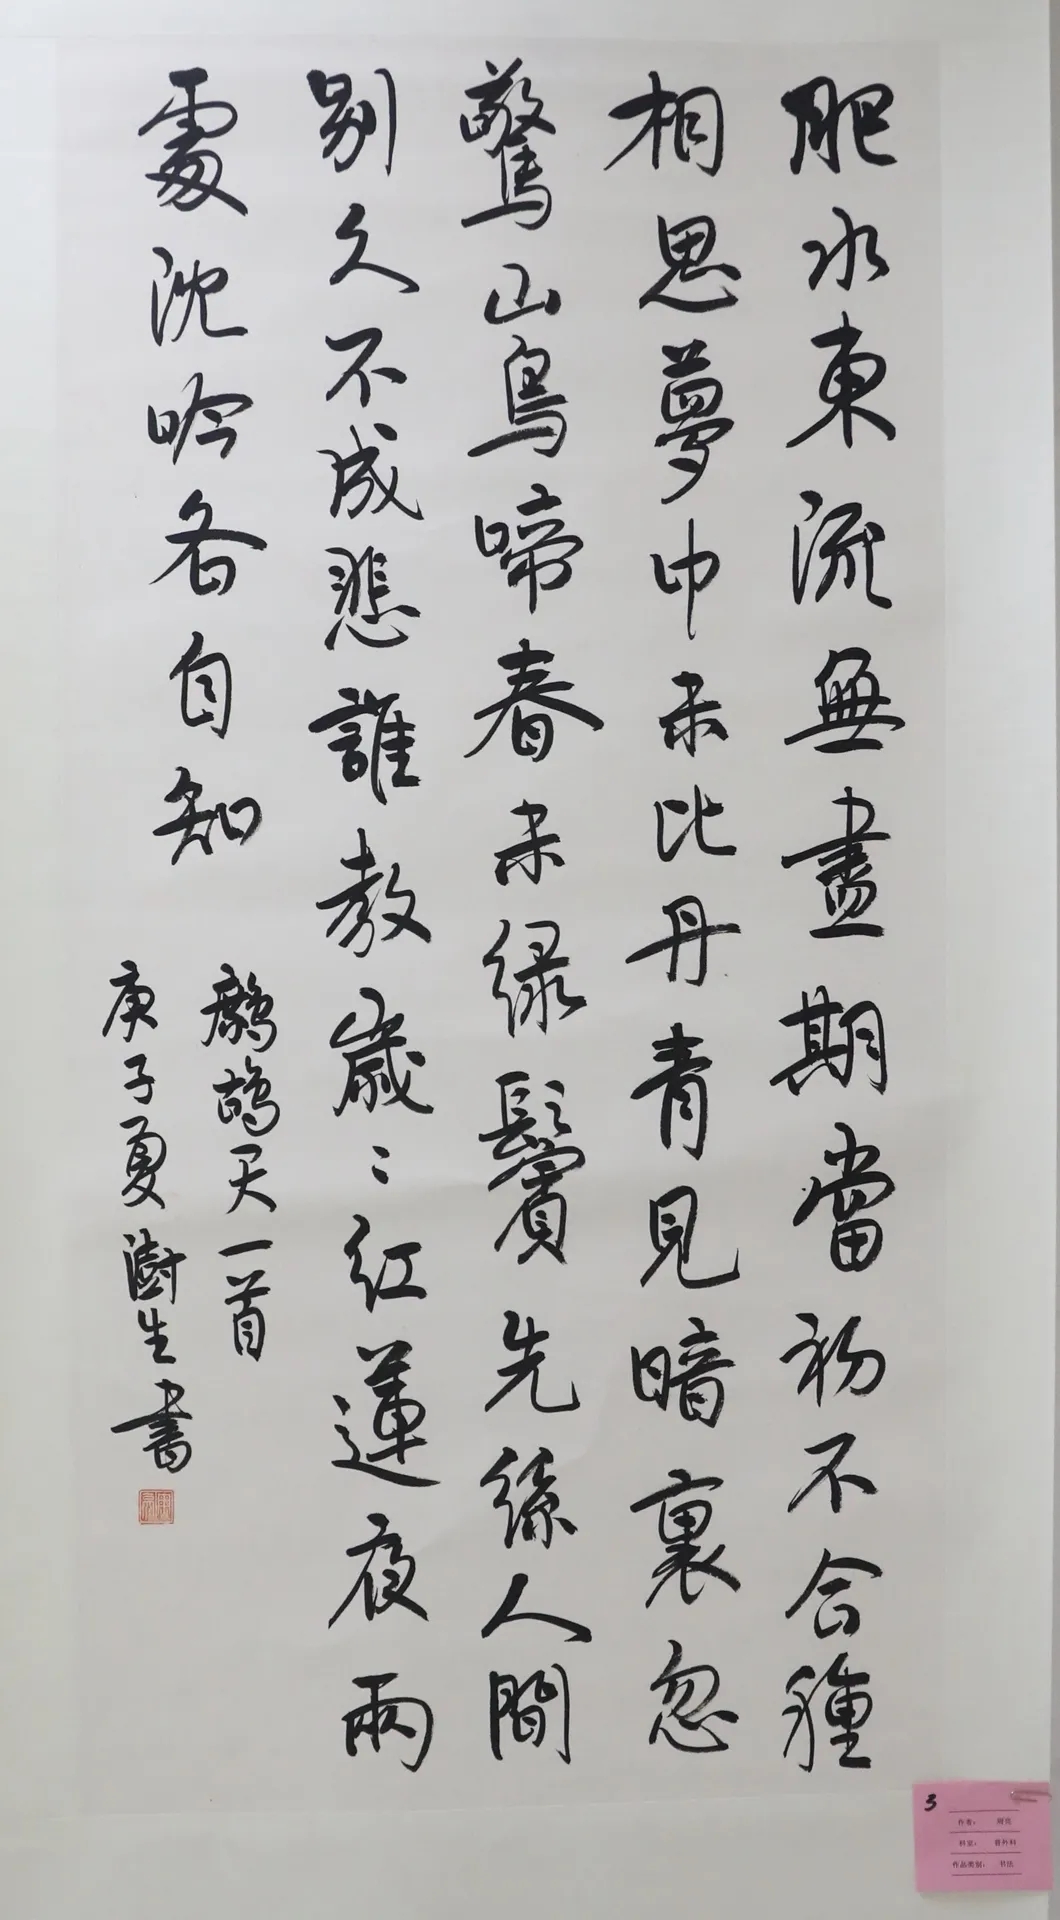 肥水東流無盡期當初不合種
相思夢中未比丹青見暗裏忽
驚山鳥啼春未綠鬢先絲人間
別久不成悲誰教歲〻紅蓮夜兩
處沈吟各自知
鷓鴣天一首
庚子夏澍生書
3
作者：
科室： 普外科
作品类别： 书法